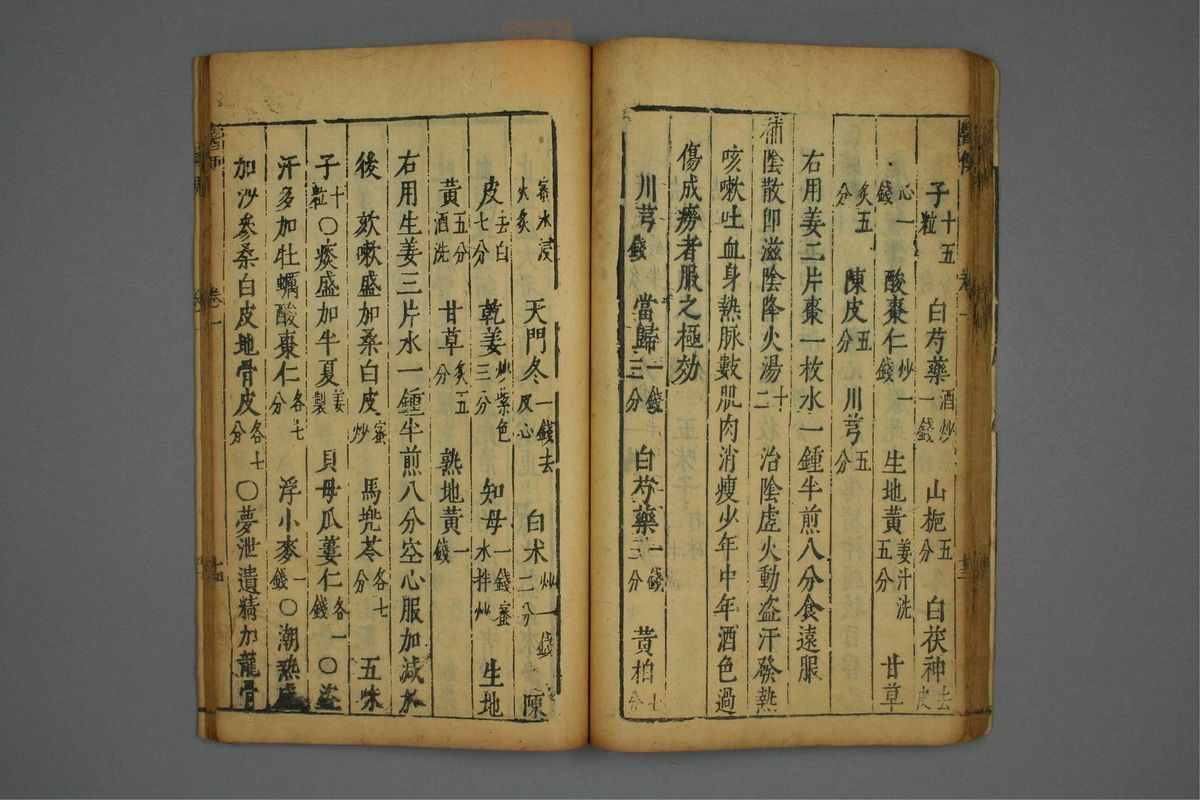 子十五粒 白芍藥酒炒一錢 山梔五分 白茯神去皮
心一錢 酸棗仁炒一錢 生地黄姜汁洗五分 甘草
炙五分 陳皮五分 川芎五分
右用姜二片棗一枚水一鍾半煎八分食遠服
補陰散卽滋陰降火湯 治陰虛火動盗汗發熱
咳嗽吐血身熱脉數肌肉消瘦少年中年酒色過
傷成癆者服之極効
川芎錢 當歸一錢三分 白芍藥一錢三分 黄柏七分
蜜水浸火炙 天門冬一錢去皮心 白术炒一錢二分 陳
皮去白七分 乾姜炒紫色三分 知母一錢蜜水拌炒 生地
黄五分酒洗 甘草炙五分 熟地黄一錢
右用生姜三片水一鍾半煎八分空心服加減水
後 欬嗽盛加桑白皮蜜炒 馬兠苓各七分 五味
子十粒〇痰盛加半夏姜製 貝母瓜蔞仁各一錢〇盗
汗多加牡蠣酸棗仁各七分 浮小麥一錢〇潮熱盛
加沙參桑白皮地骨皮各七分〇夢泄遺精加龍骨
卷一